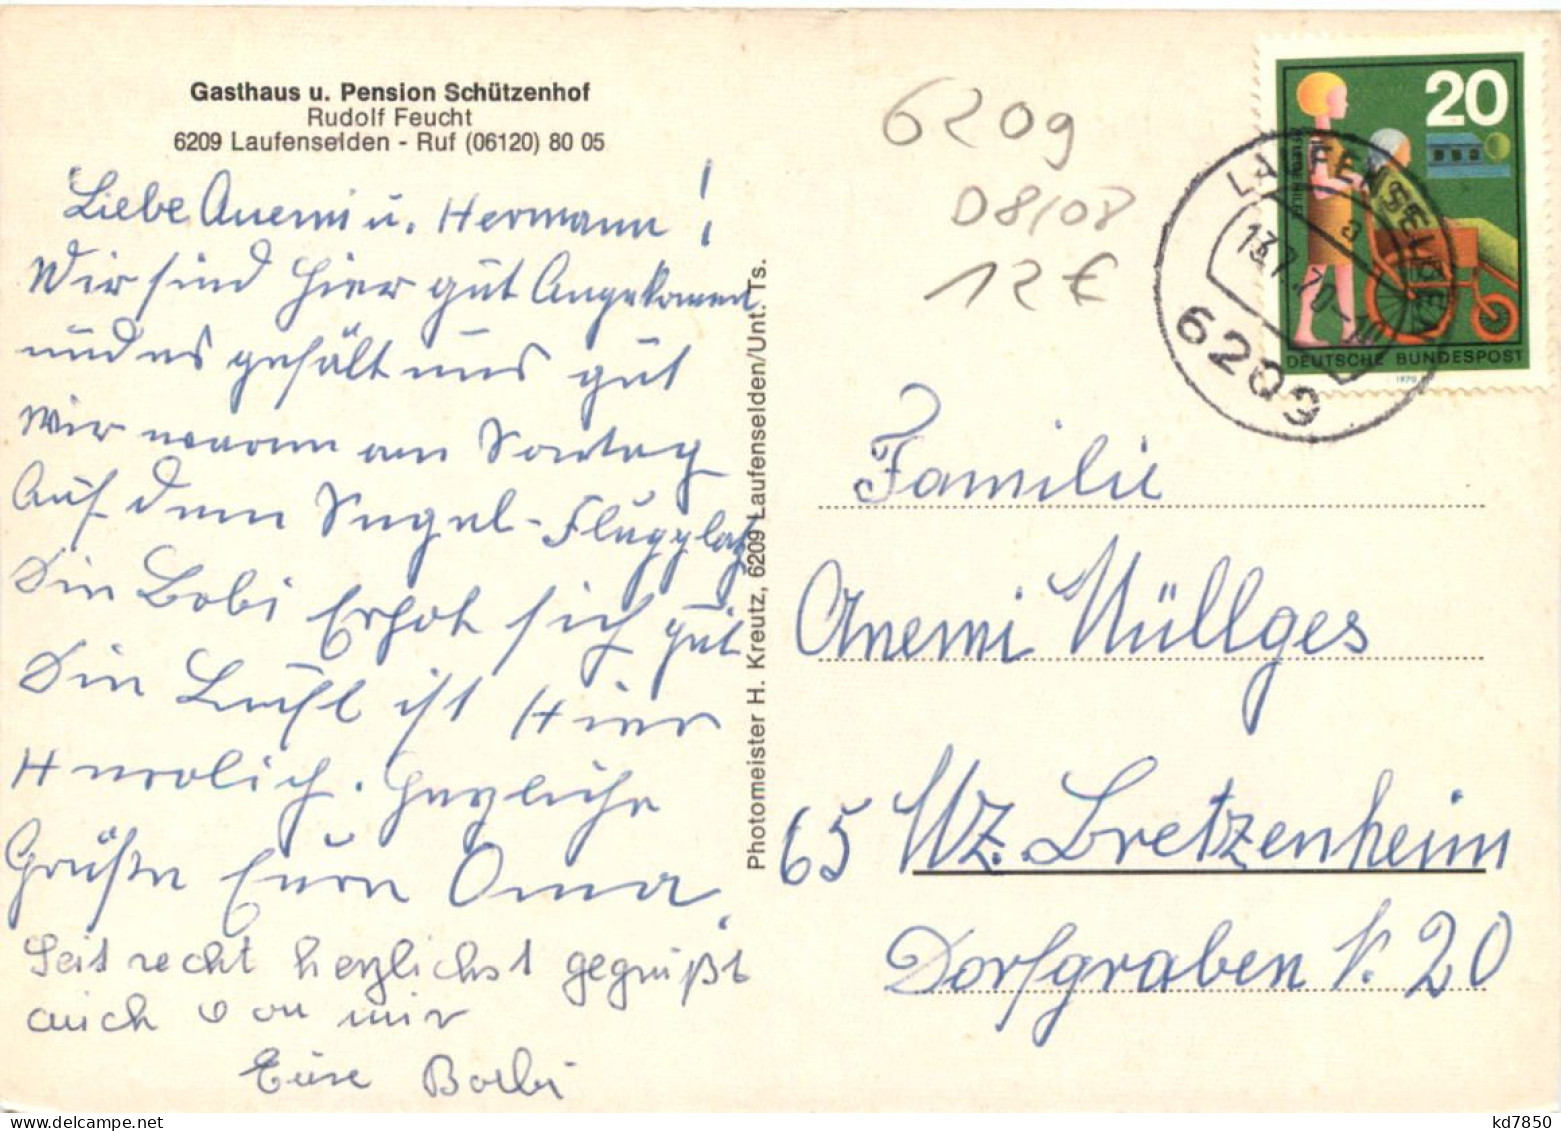 Gasthaus u. Pension Schützenhof
Rudolf Feucht
6209 Laufenselden - Ruf (06120) 80 05
Liebe Anemi u. Hermann!
Wir sind Hier gut Angekomen
und es gefält uns gut
Wir waren am Sontag
Auf dem Segel-Flugplatz
Die Bobi Erholt sich gut
Die Luft ist Hier
Herrlich. Herzliche
Grüße Eure Oma.
Seit recht herzlichst gegrüßt
auch von mir
Eure Bobi
Photomeister H. Kreutz, 6209 Laufenselden/Unt. Ts.
6209
D8/08
12 €
20
DEUTSCHE BUNDESPOST
1970
LAUFENSELDEN
a
13.7.70-10
6209
Familie
Anemi Müllges
65 MZ. Bretzenheim
Dorfgraben N. 20
www.delcampe.net
kd7850